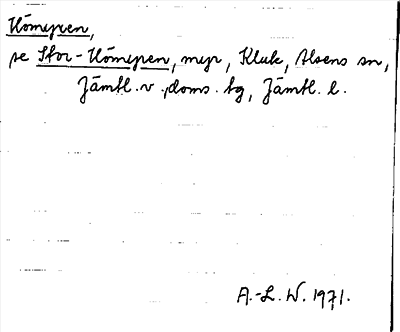 Hömyren,
se Stor-Hömyren, myr, Kluk, Alsens sn,
Jämtl. v. doms. tg, Jämtl. l.
A.-L. W. 1971.